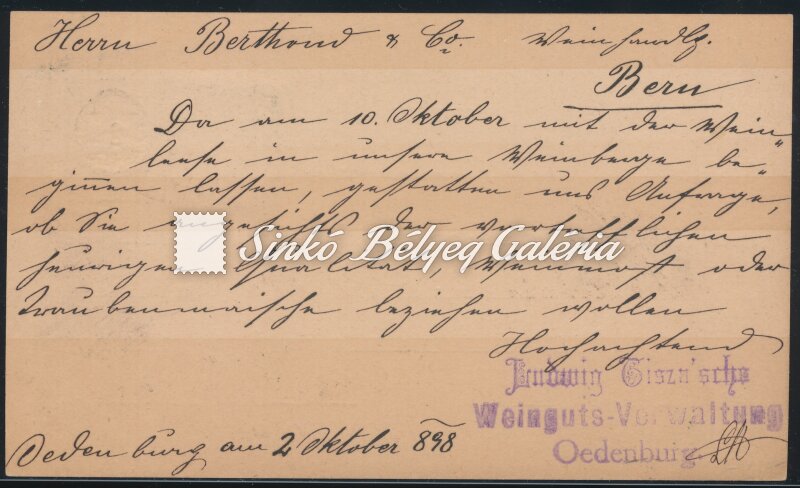 Herrn Berthoud & Co. Weinhandlg.
Bern
Da am 10. Oktober mit der Wein„
leese in unsere Weinberge be„
ginnen lassen, gestatten uns Anfrage,
ob Sie angesichts der vortrefflichen
heurigen Qualität, Weinmost oder
Traubenmaische beziehen wollen
Hochachtend
Ludwig Tisza'sche
Weinguts-Verwaltung
Oedenburg.
Oedenburg am 2 Oktober 898
Sinkó Bélyeg Galéria